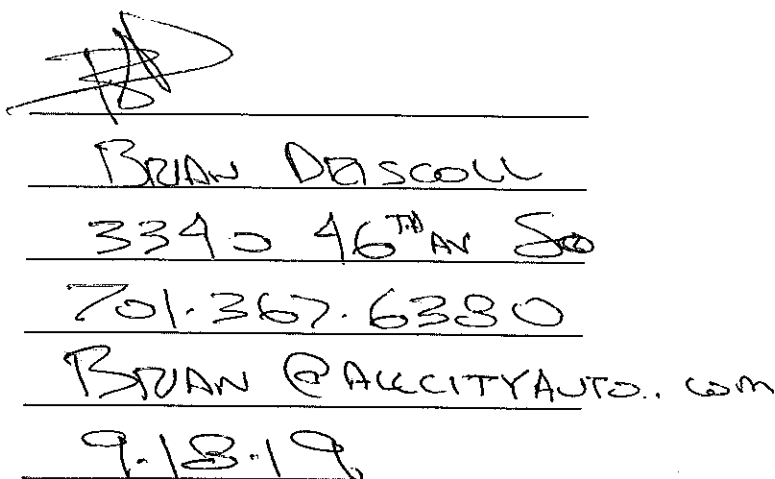 BRIAN DRISCOLL
3340 46TH AV SO
701.367.6380
BRIAN @ALLCITYAUTO..com
9.18.19